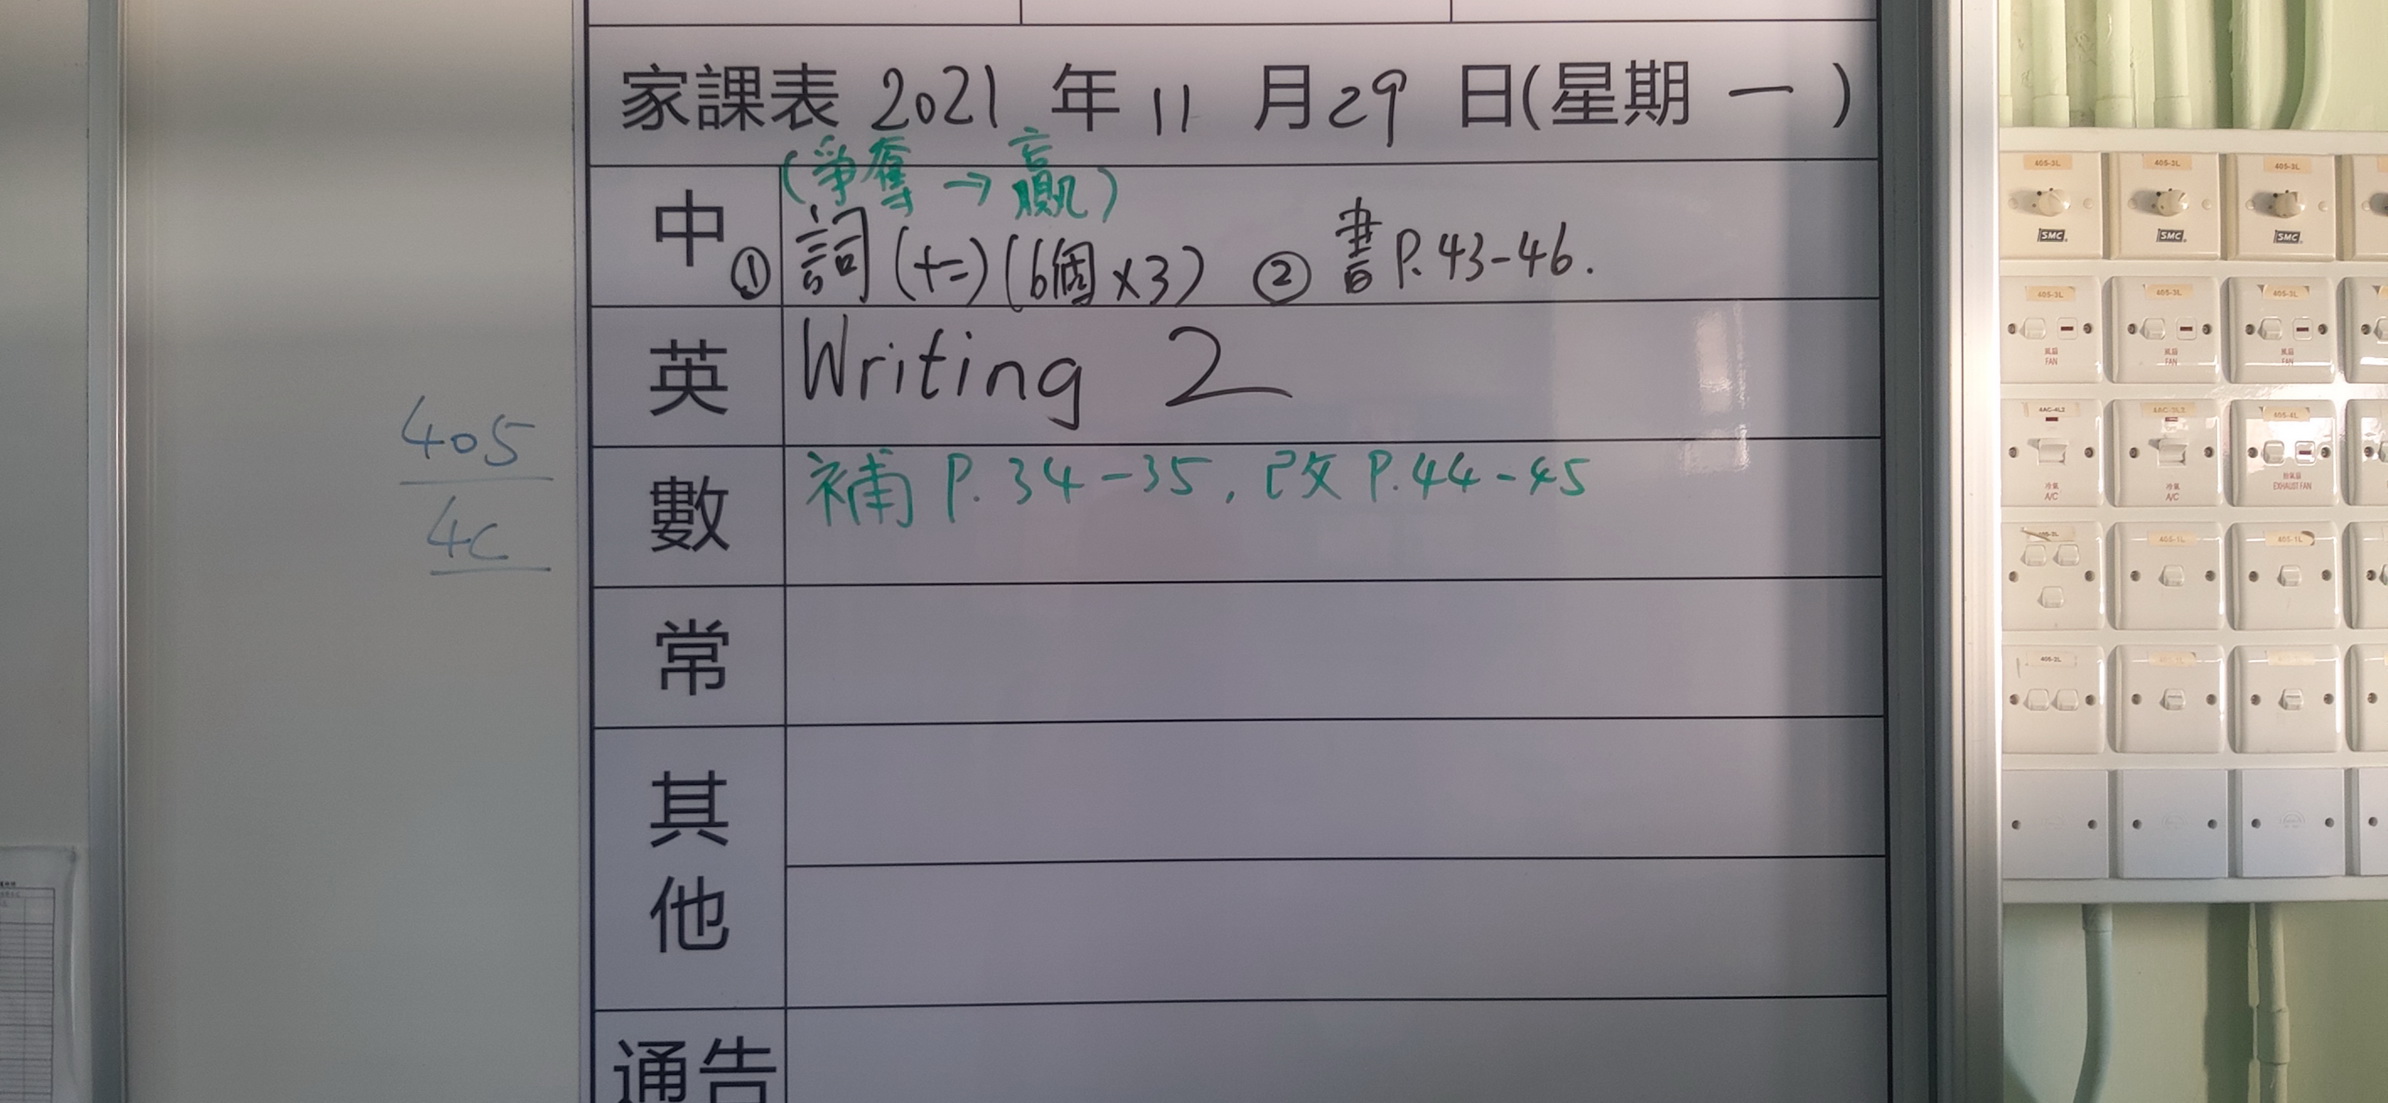 家課表 2021 年 11 月 29 日(星期 一 )
(爭奪 → 贏)
中 ① 詞 (十二) (6個×3) ② 書 P.43-46.
英 Writing 2
數 補 P.34-35, 改 P.44-45
常
其他
通告
405
4C
405-3L 405-3L 405-3L
SMC SMC SMC
405-3L 405-3L 405-3L
風扇 風扇 風扇
FAN FAN FAN
4AC-4L2 405-4L
冷氣 冷氣
A/C A/C EXHAUST FAN
405-1L 405-1L
405-2L